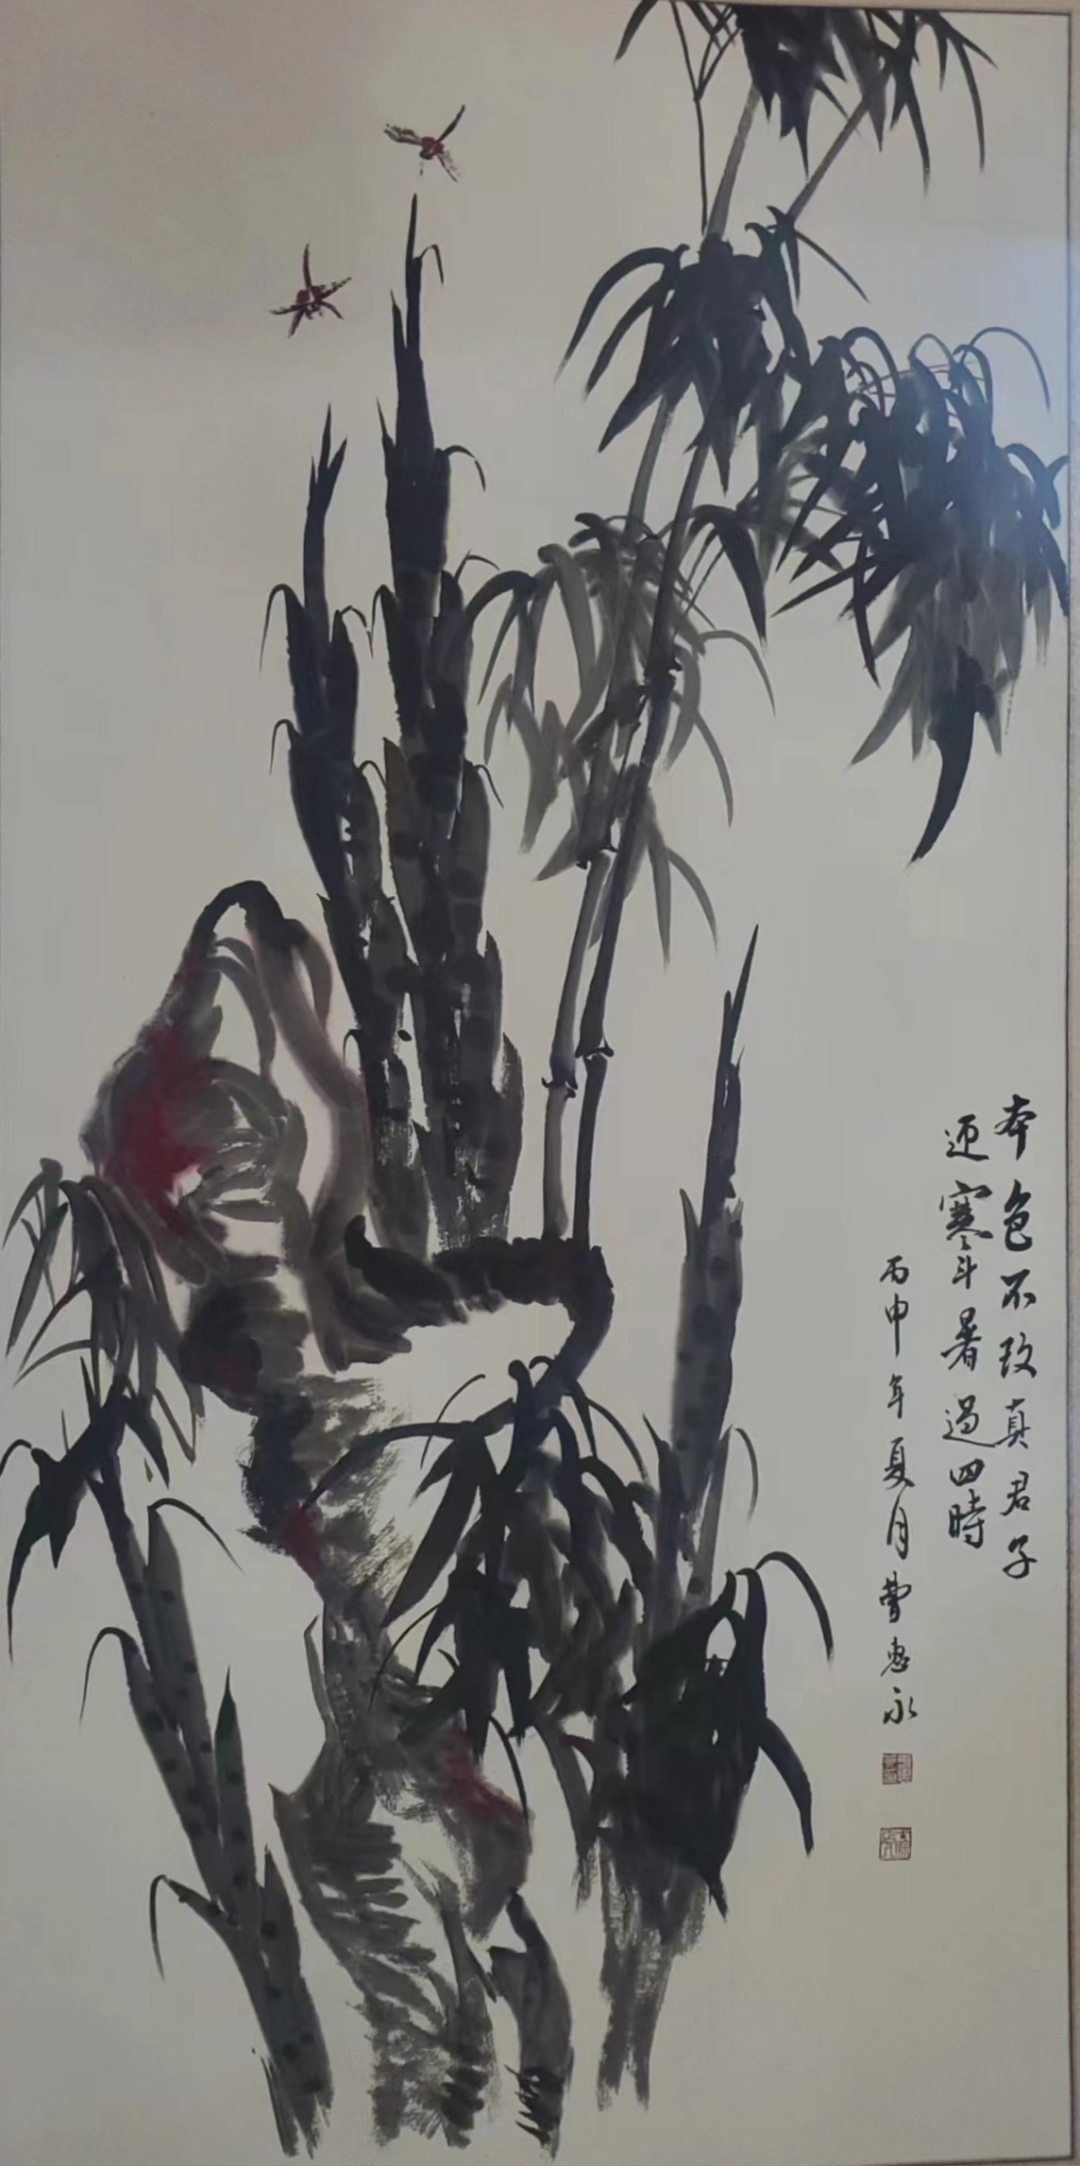 本色不改真君子
迎寒斗暑過四時
丙申年夏月曹惠永